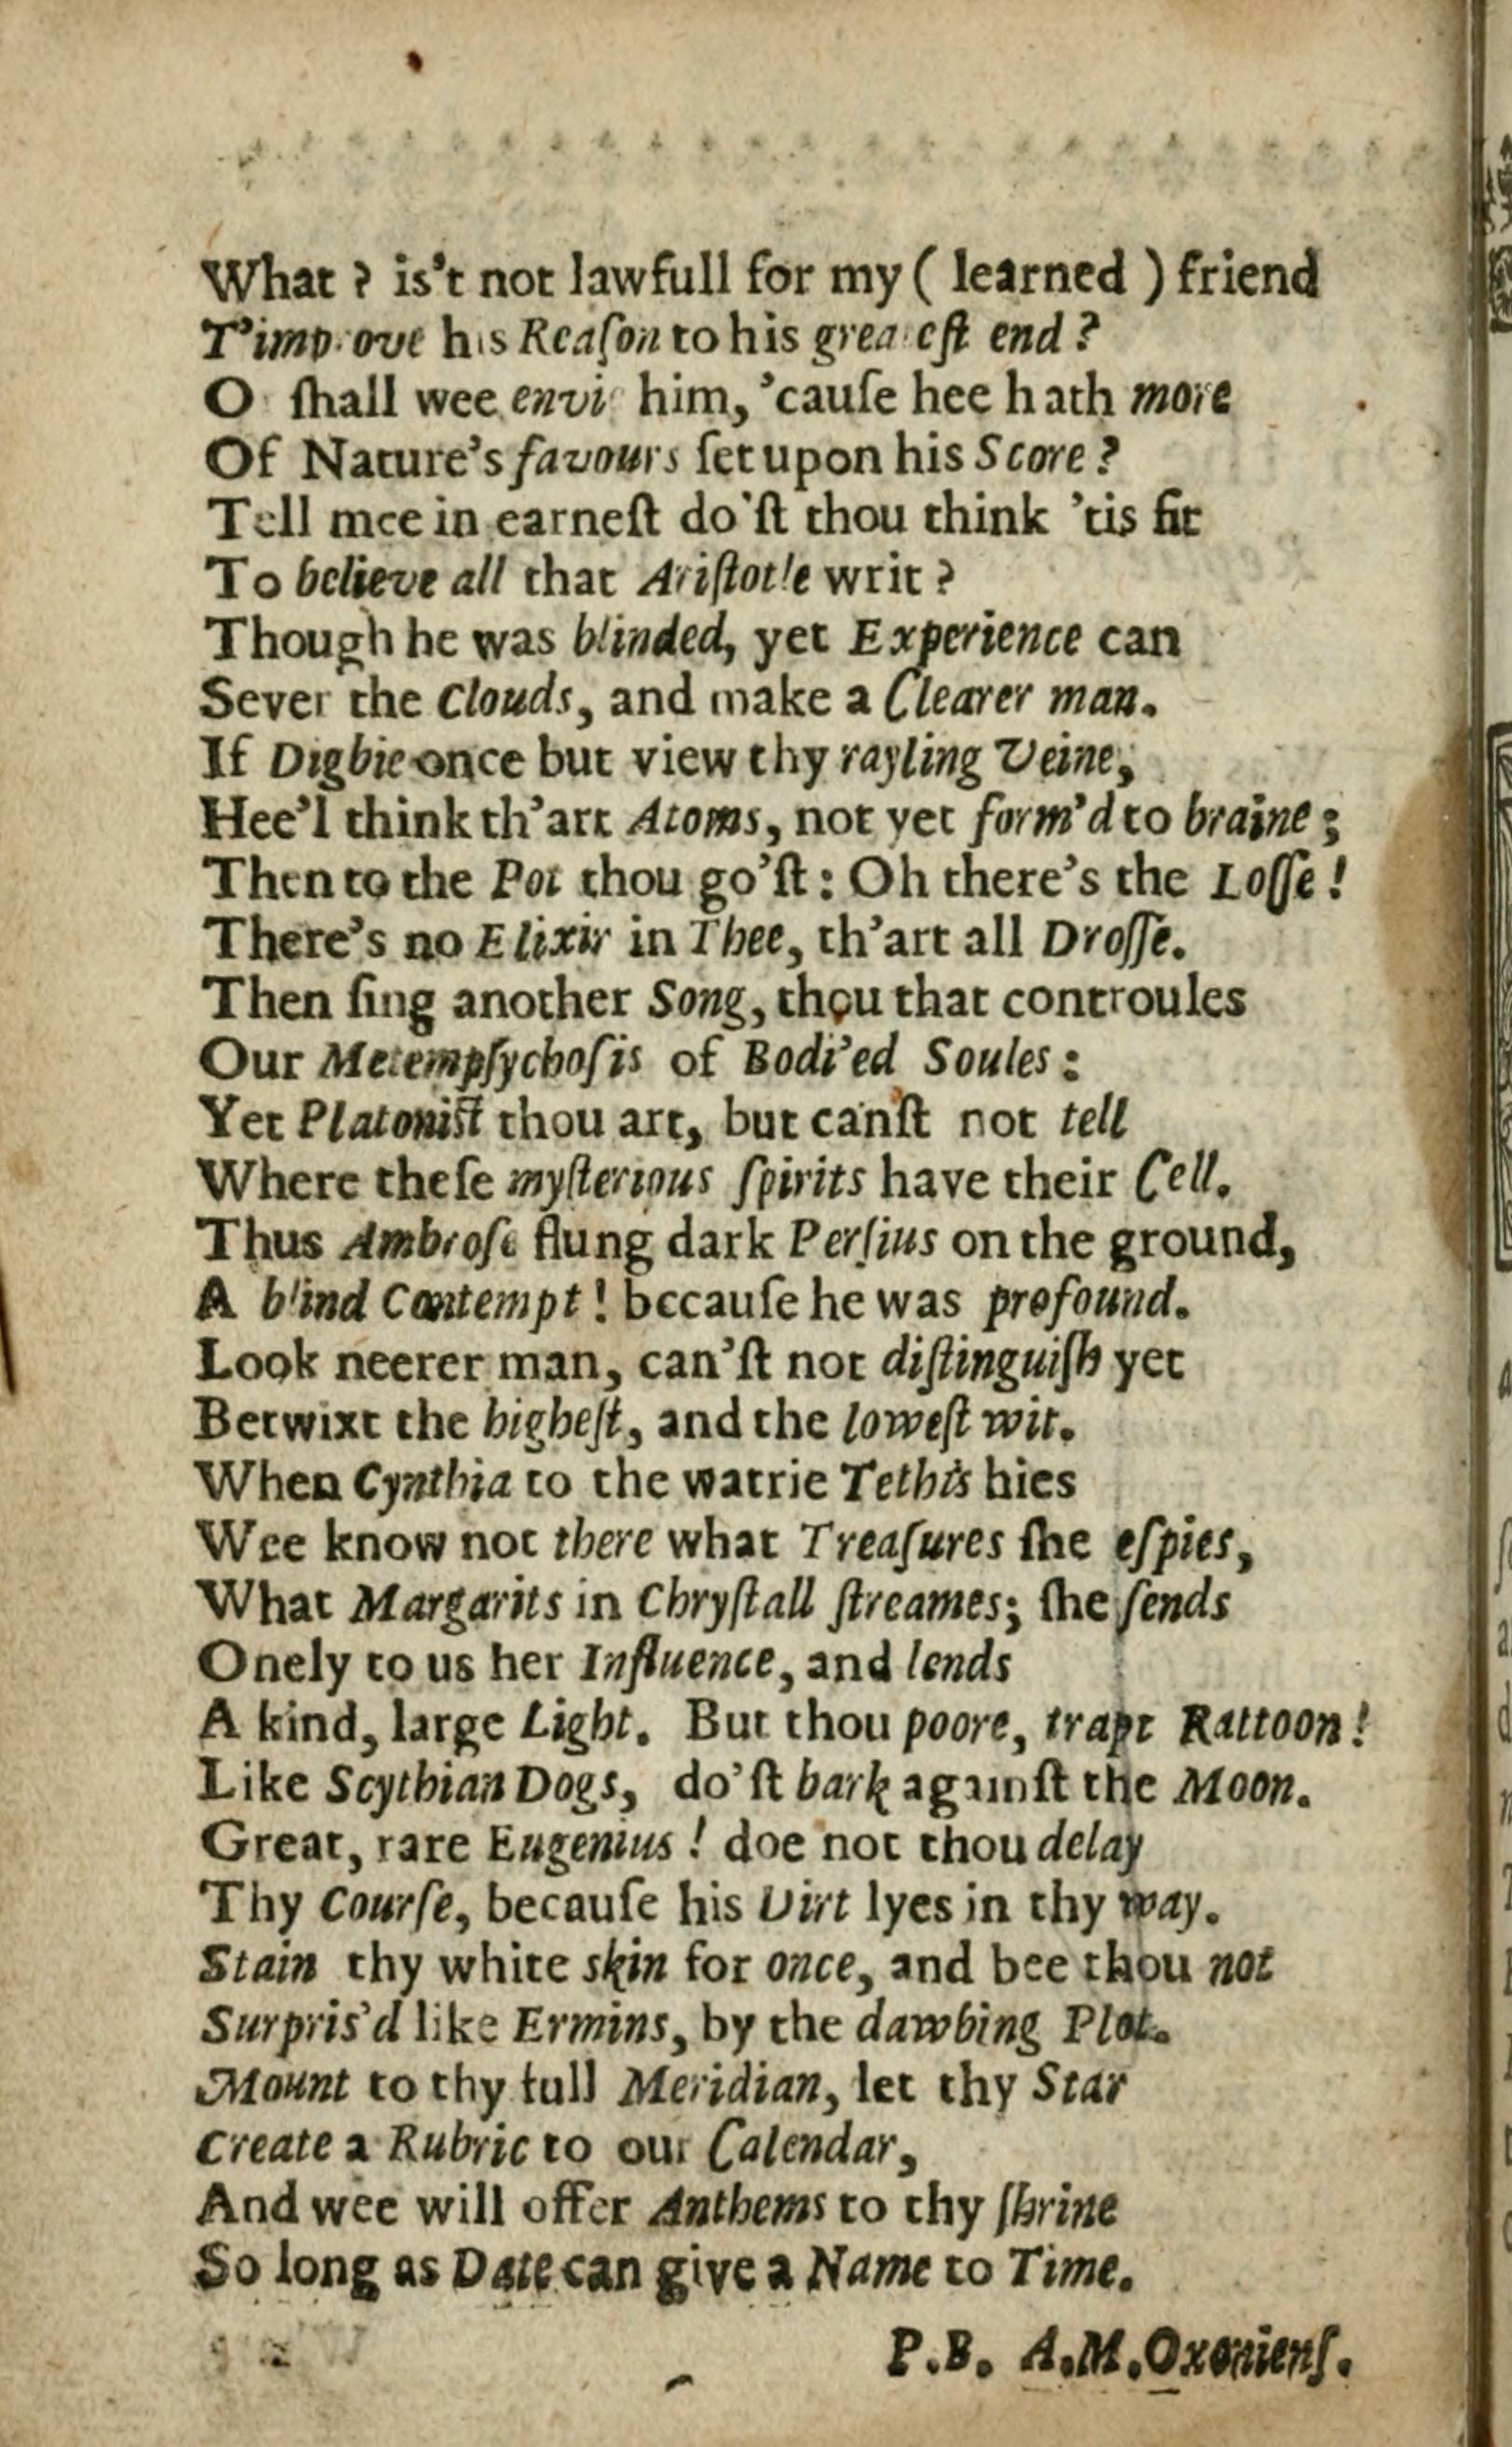 What ? is't not lawfull for my ( learned ) friend
T'improve his Reaſon to his greateſt end ?
O ſhall wee envie him, 'cauſe hee hath more
Of Nature's favours ſet upon his Score ?
Tell mee in earneſt do'ſt thou think 'tis fit
To believe all that Ariſtotle writ ?
Though he was blinded, yet Experience can
Sever the Clouds, and make a Clearer man.
If Digbie once but view thy rayling Veine,
Hee'l think th'art Atoms, not yet form'd to braine ;
Then to the Pot thou go'ſt : Oh there's the Loſſe !
There's no Elixir in Thee, th'art all Droſſe.
Then ſing another Song, thou that controules
Our Metempſychoſis of Bodi'ed Soules :
Yet Platoniſt thou art, but canſt not tell
Where theſe myſterious ſpirits have their Cell.
Thus Ambroſe flung dark Perſius on the ground,
A blind Contempt ! becauſe he was profound.
Look neerer man, can'ſt not diſtinguiſh yet
Betwixt the higheſt, and the loweſt wit.
When Cynthia to the watrie Tethis hies
Wee know not there what Treaſures ſhe eſpies,
What Margarits in Chryſtall ſtreames; ſhe ſends
Onely to us her Influence, and lends
A kind, large Light. But thou poore, trapt Rattoon !
Like Scythian Dogs, do'ſt bark againſt the Moon.
Great, rare Eugenius ! doe not thou delay
Thy Courſe, becauſe his Dirt lyes in thy way.
Stain thy white skin for once, and bee thou not
Surpris'd like Ermins, by the dawbing Plot.
Mount to thy full Meridian, let thy Star
Create a Rubric to our Calendar,
And wee will offer Anthems to thy ſhrine
So long as Date can give a Name to Time.
P.B. A.M.Oxonienſ.